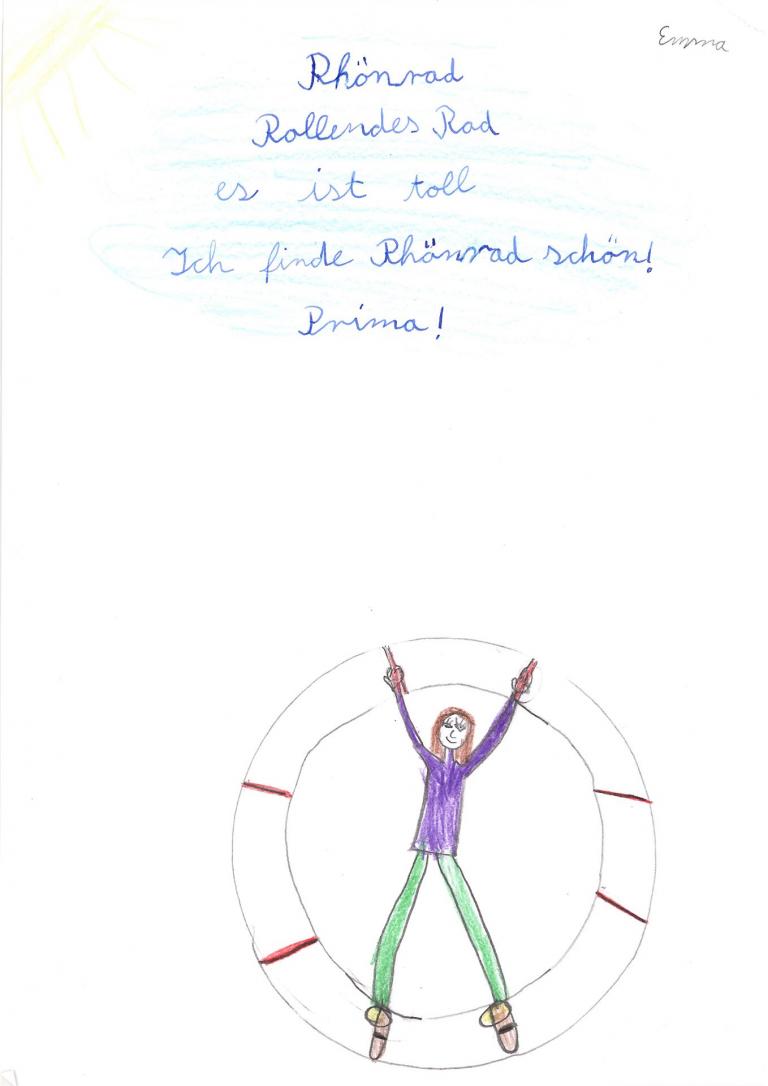 Emma
Rhönrad
Rollendes Rad
es ist toll
Ich finde Rhönrad schön!
Prima!